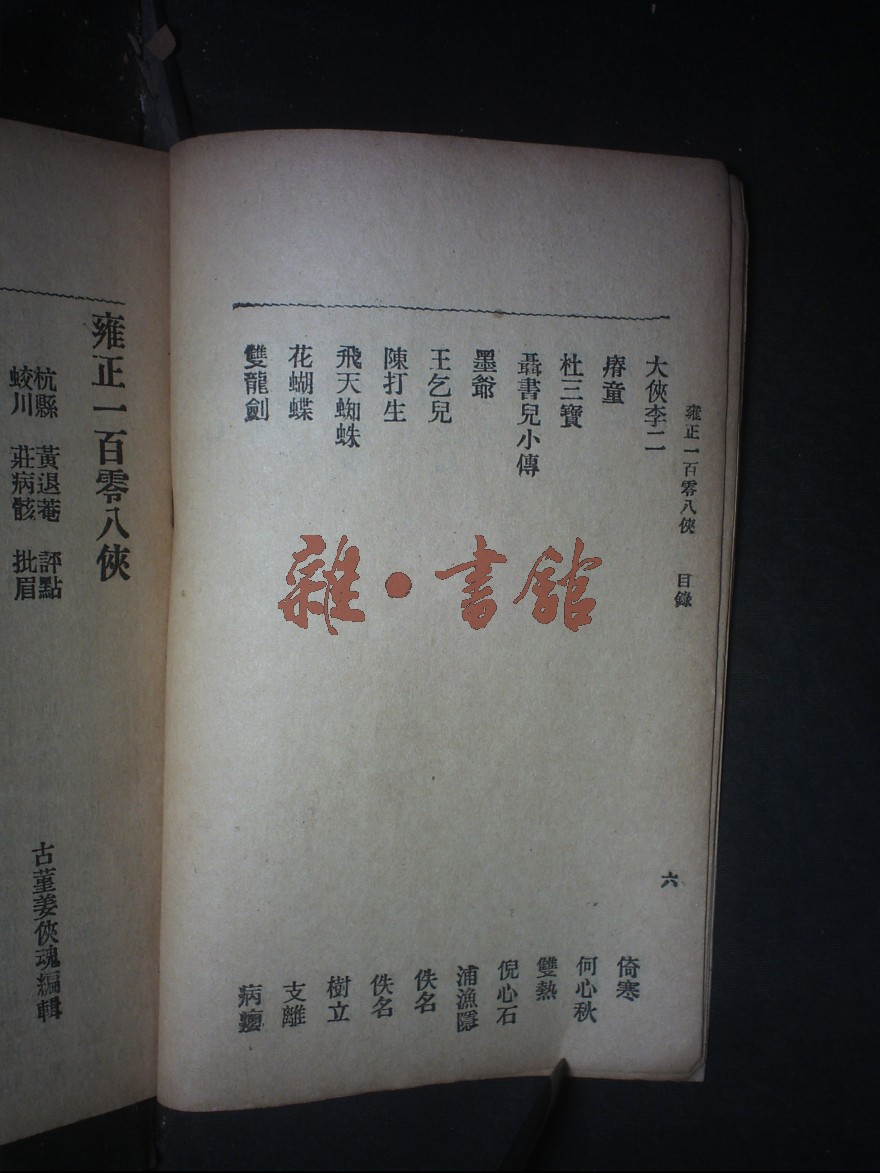 雍正一百零八俠 目錄 六
大俠李二 倚寒
童 何心秋
杜三寶 雙熱
聶書兒小傳 倪心石
墨爺 浦漁隱
王乞兒 佚名
陳打生 佚名
飛天蜘蛛 樹立
花蝴蝶 支離
雙龍劍 病
雜·書館
雍正一百零八俠
杭縣 黃退菴 評點
蛟川 莊病骸 批眉
古董姜俠魂編輯